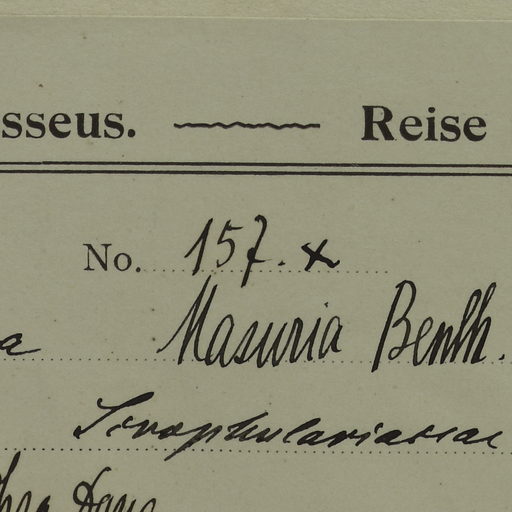 sseus. Reise
No. 157. x
a Masuria Benth.
Scrophulariaceae